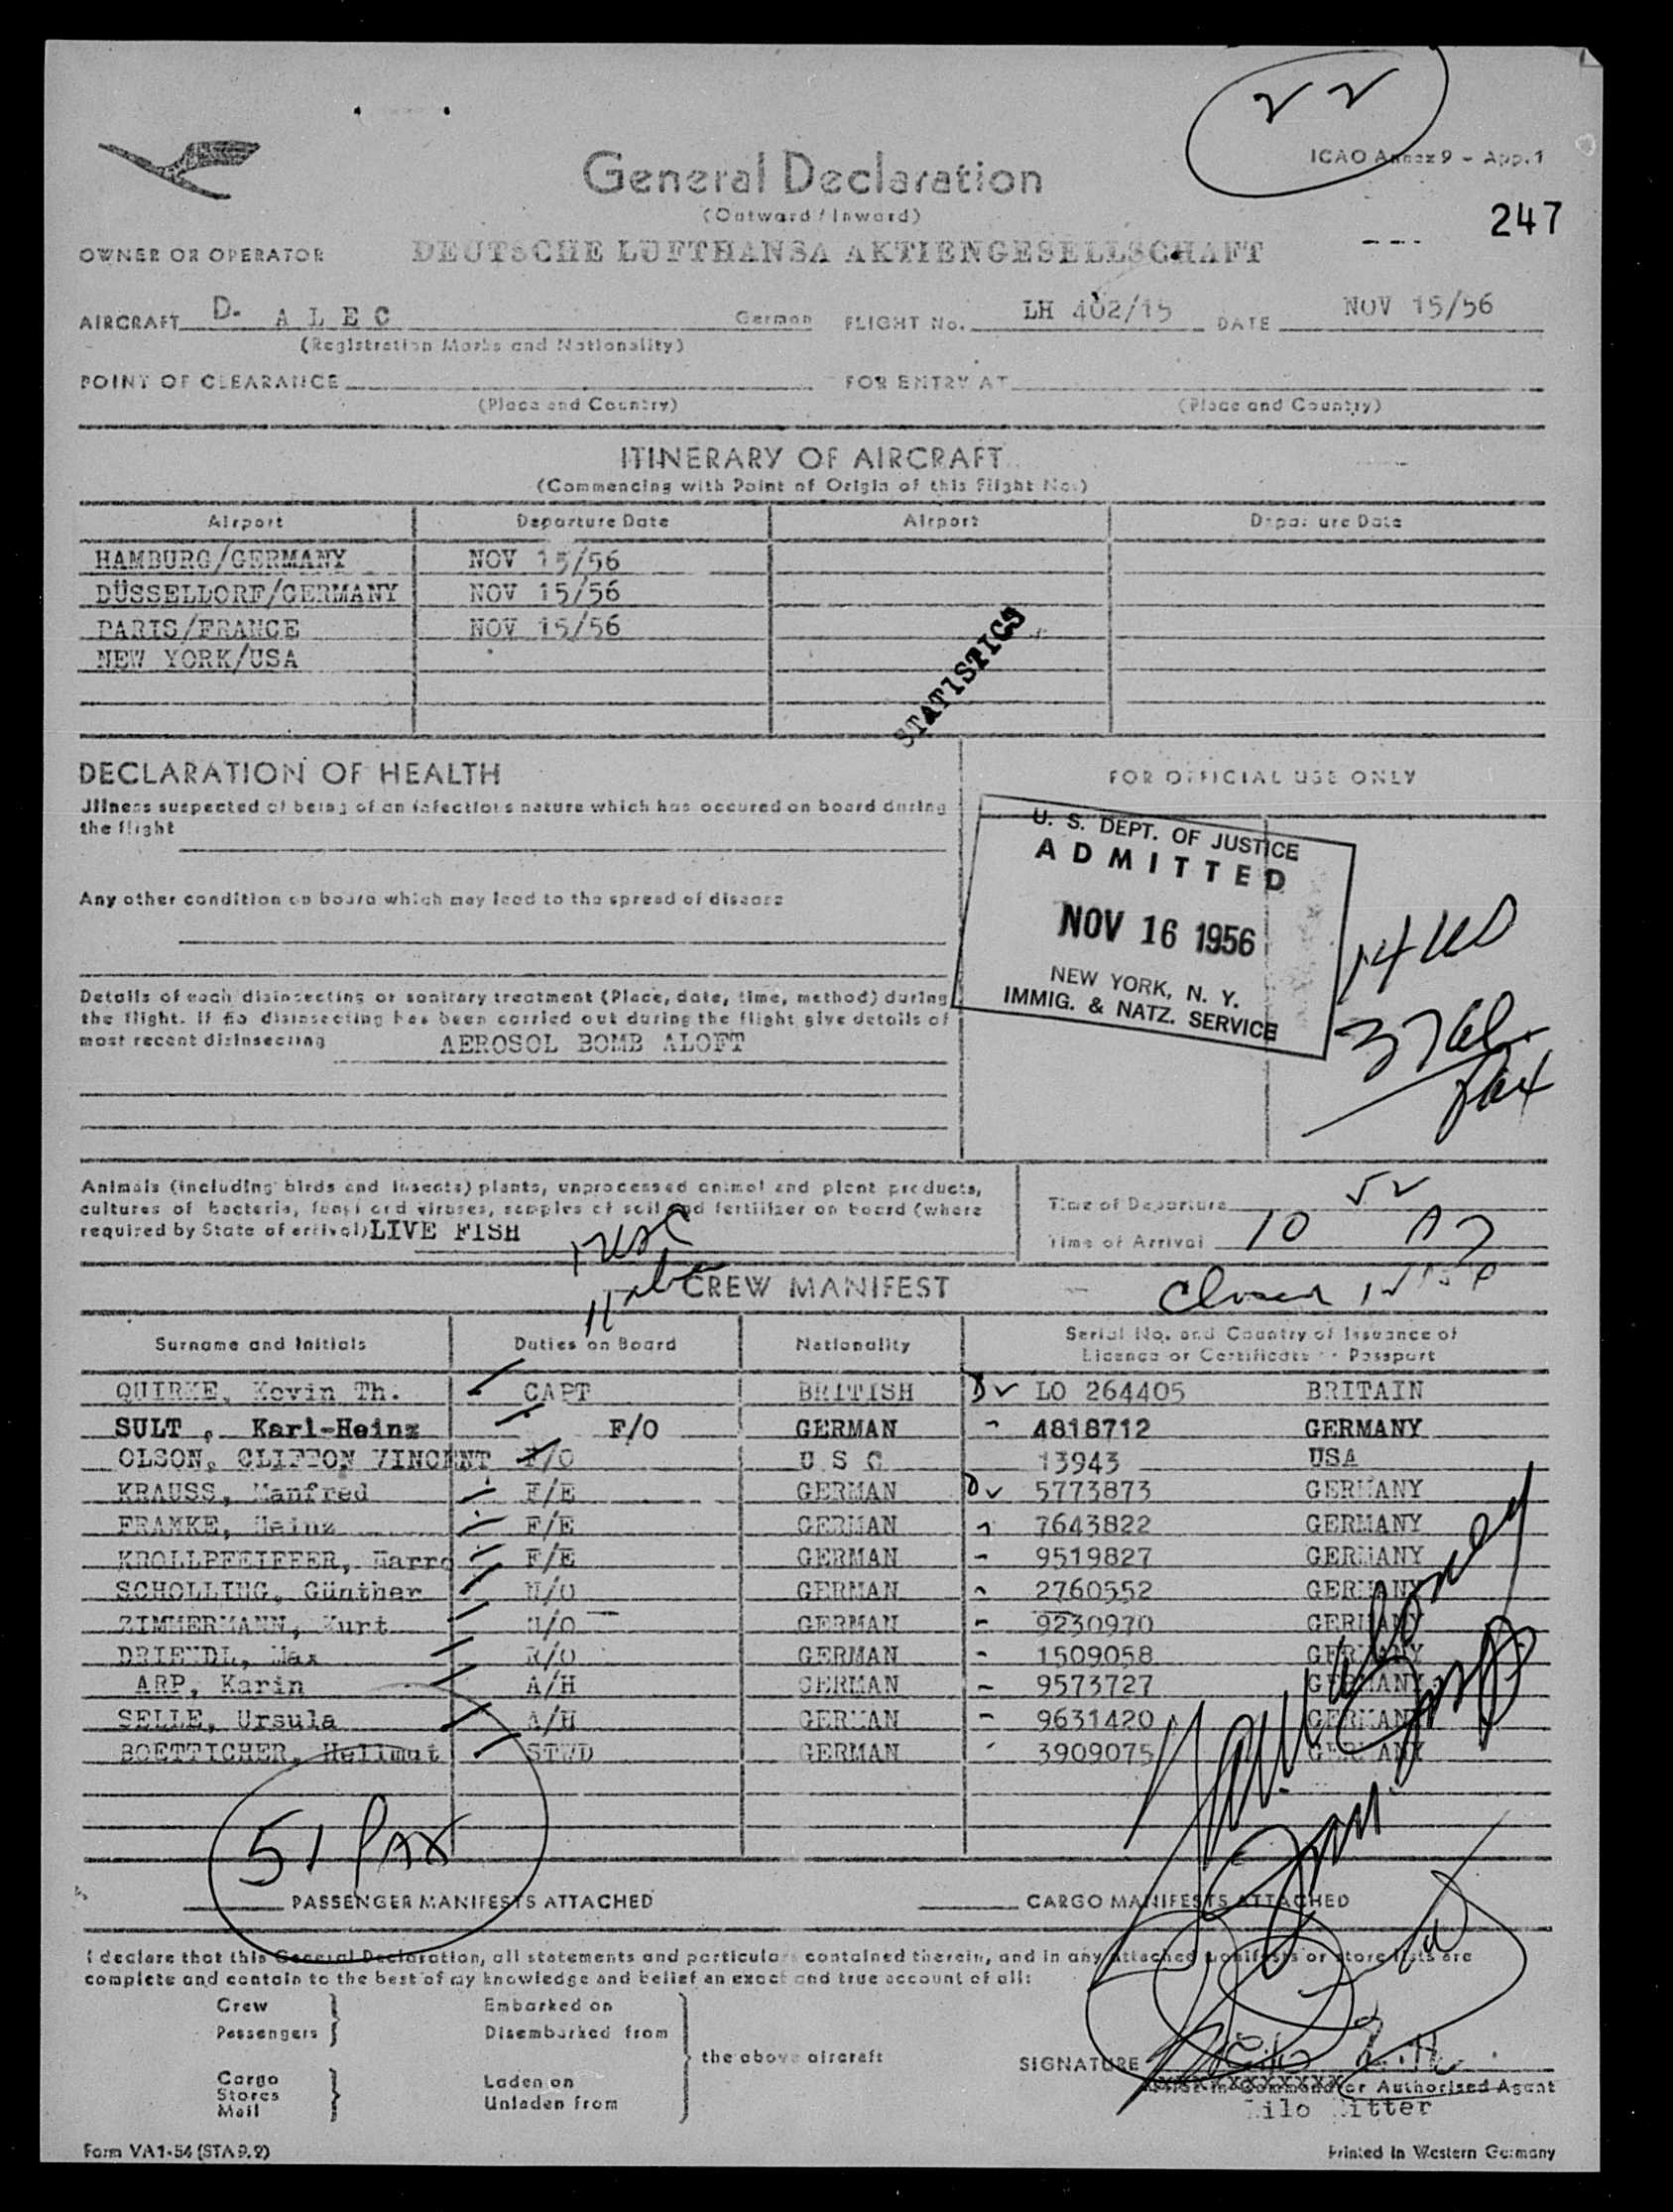 22
ICAO Annex 9 - App. 1
General Declaration
(Outward / Inward)
247
OWNER OR OPERATOR DEUTSCHE LUFTHANSA AKTIENGESELLSCHAFT
AIRCRAFT D- A L E C German FLIGHT No. LH 402/15 DATE NOV 15/56
(Registration Marks and Nationality)
POINT OF CLEARANCE FOR ENTRY AT
(Place and Country) (Place and Country)
ITINERARY OF AIRCRAFT
(Commencing with Point of Origin of this Flight No.)
Airport Departure Date Airport Departure Date
HAMBURG/GERMANY NOV 15/56
DÜSSELLORF/GERMANY NOV 15/56
PARIS/FRANCE NOV 15/56
NEW YORK/USA
STATISTICS
DECLARATION OF HEALTH
FOR OFFICIAL USE ONLY
Jllness suspected of being of an infectious nature which has occured on board during
the flight
U. S. DEPT. OF JUSTICE
ADMITTED
NOV 16 1956
NEW YORK, N. Y.
IMMIG. & NATZ. SERVICE
14 US
37 al.
pax
Any other condition on board which may lead to the spread of disease
Details of each disinsecting or sanitary treatment (Place, date, time, method) during
the flight. If no disinsecting has been carried out during the flight give details of
most recent disinsecting AEROSOL BOMB ALOFT
Animals (including birds and insects) plants, unprocessed animal and plant products,
cultures of bacteria, fungi and viruses, samples of soil and fertilizer on board (where
required by State of arrival) LIVE FISH
Time of Departure
Time of Arrival 10 52 A
CREW MANIFEST
Closed
Surname and Initials Duties on Board Nationality Serial No. and Country of Issuance of
Licence or Certificate - Passport
QUIRKE, Kevin Th. CAPT BRITISH LO 264405 BRITAIN
SULT , Karl-Heinz F/O GERMAN 4818712 GERMANY
OLSON, CLIFTON VINCENT F/O U S C 13943 USA
KRAUSS, Manfred F/E GERMAN 5773873 GERMANY
FRAMKE, Heinz F/E GERMAN 7643822 GERMANY
KROLLPFEIFFER, Harro F/E GERMAN 9519827 GERMANY
SCHOLLING, Günther N/O GERMAN 2760552 GERMANY
ZIMMERMANN, Kurt N/O GERMAN 9230970 GERMANY
DRIENDL, Max R/O GERMAN 1509058 GERMANY
ARP, Karin A/H GERMAN 9573727 GERMANY
SELLE, Ursula A/H GERMAN 9631420 GERMANY
BOETTICHER, Hellmut STWD GERMAN 3909075 GERMANY
51 PAX
PASSENGER MANIFESTS ATTACHED CARGO MANIFESTS ATTACHED
I declare that this General Declaration, all statements and particulars contained therein, and in any attached manifests or store lists are
complete and contain to the best of my knowledge and belief an exact and true account of all:
Crew Embarked on
Passengers Disembarked from
the above aircraft
Cargo Laden on
Stores
Mail Unladen from
SIGNATURE
or Authorised Agent
Lilo Ritter
Form VA1-54 (STA 9.2) Printed in Western Germany